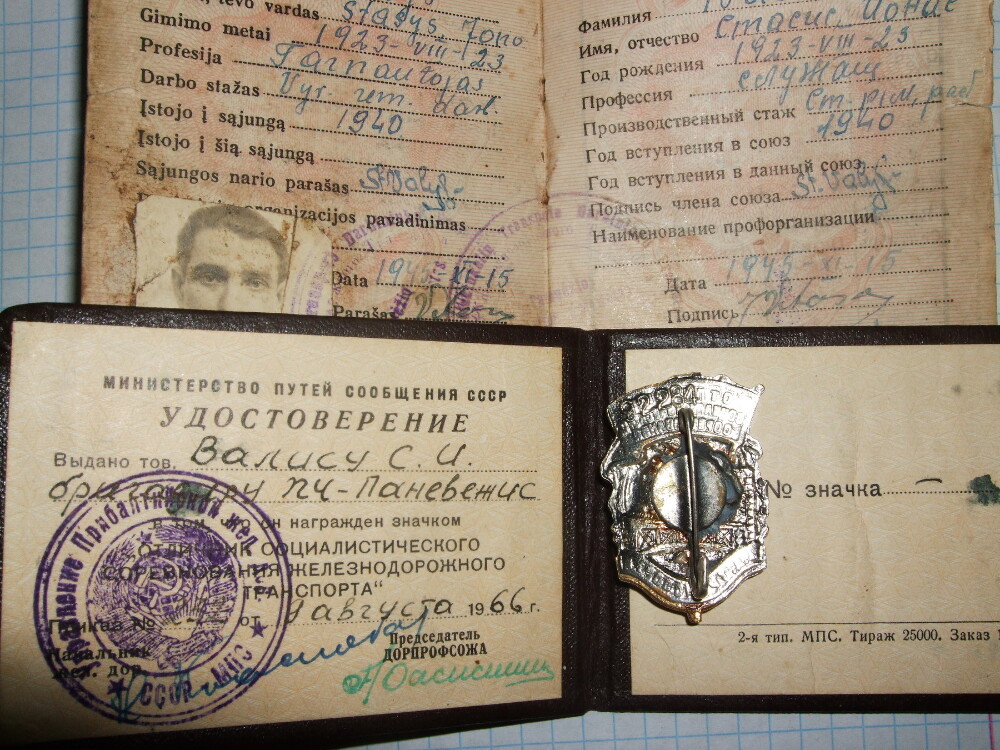 tėvo vardas Stasys Jono
Gimimo metai 1923-VIII-23
Profesija Tarnautojas
Darbo stažas Vyr. rem. darb.
Įstojo į sąjungą 1940
Įstojo į šią sąjungą
Sąjungos nario parašas St. Valys
organizacijos pavadinimas
Data 1945-XI-15
Parašas
Фамилия
Имя, отчество Стасис Йонас
Год рождения 1923-VIII-23
Профессия служащ
Производственный стаж Ст. рем. раб
Год вступления в союз 1940
Год вступления в данный союз
Подпись члена союза St. Valys
Наименование профорганизации
Дата 1945-XI-15
Подпись
МИНИСТЕРСТВО ПУТЕЙ СООБЩЕНИЯ СССР
УДОСТОВЕРЕНИЕ
Выдано тов. Валису С. И.
бригадиру ПЧ-Паневежис
в том, что он награжден значком
"ОТЛИЧНИК СОЦИАЛИСТИЧЕСКОГО
СОРЕВНОВАНИЯ ЖЕЛЕЗНОДОРОЖНОГО
ТРАНСПОРТА"
Приказ № от августа 1966 г.
Начальник
жел. дор.
Председатель
ДОРПРОФСОЖА
Прибалтийской жел.
СССР МПС
№ значка —
2-я тип. МПС. Тираж 25000. Заказ